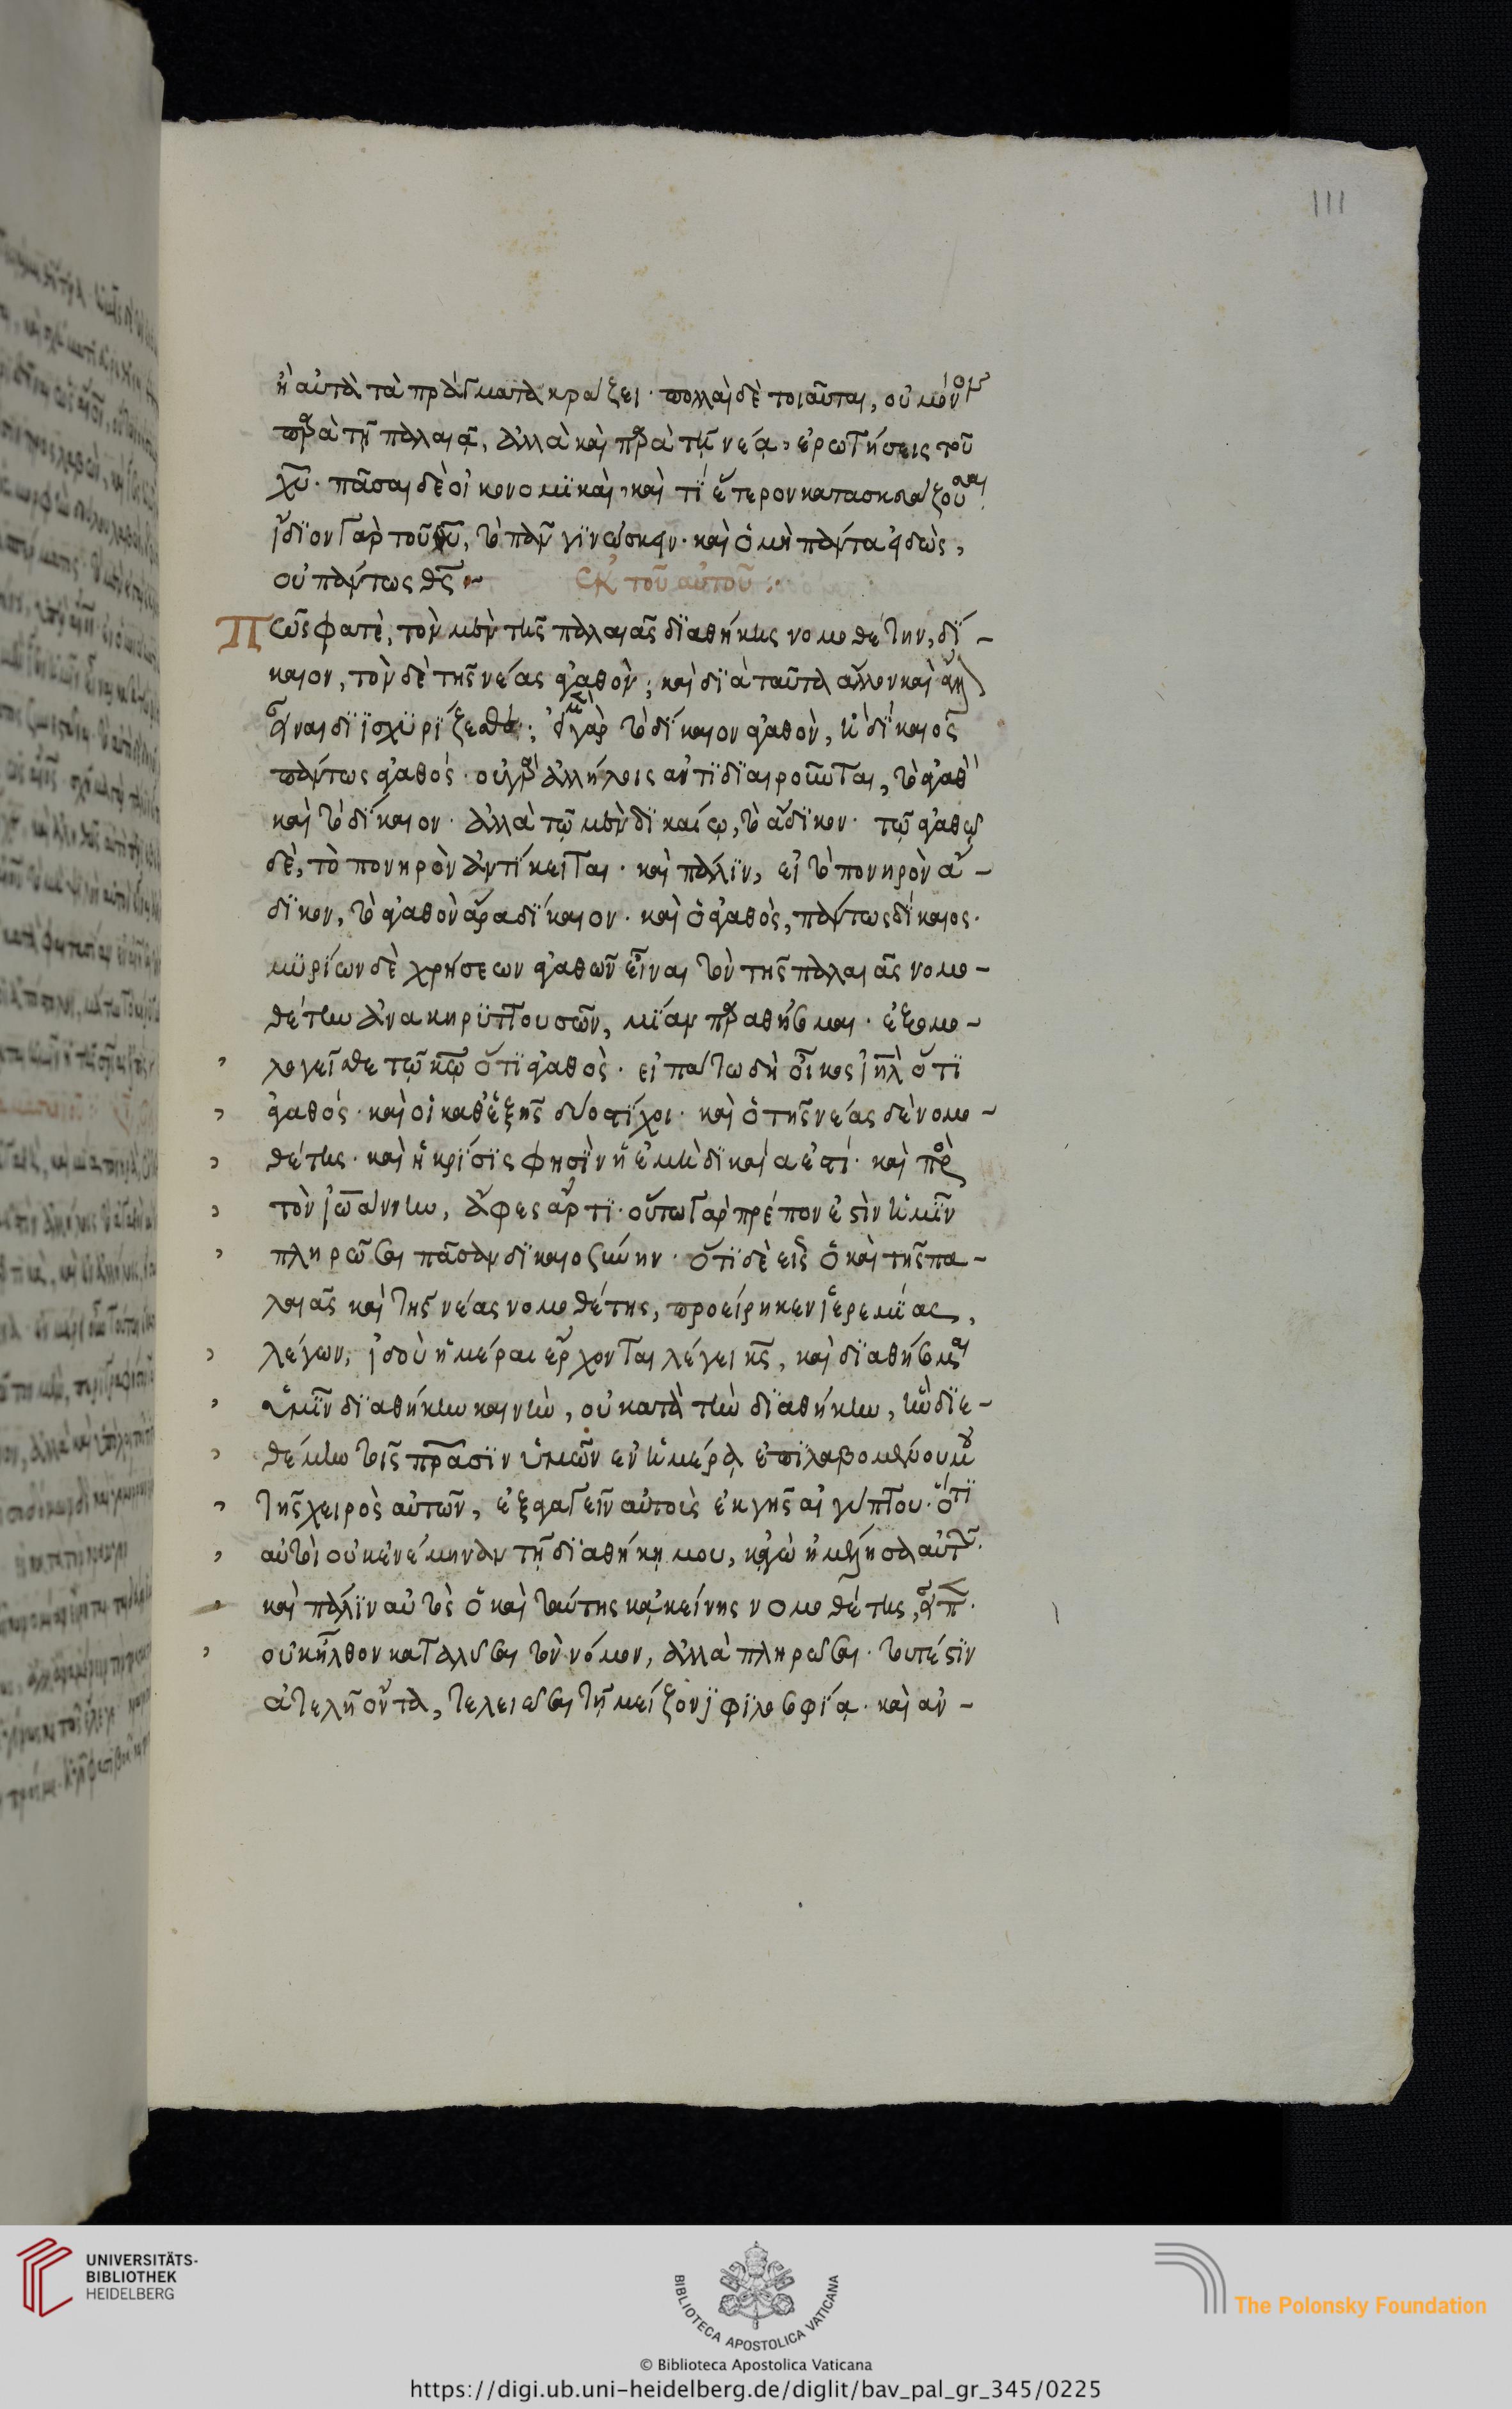 111
ἢ αὐτὰ τὰ πράγματα κράζει· πολλαὶ δὲ τοιαῦται, οὐ μόνον
παρὰ τῇ παλαιᾷ, ἀλλὰ καὶ παρὰ τῇ νέᾳ, ἐρωτήσεις τοῦ
χ̅υ̅· πᾶσαι δὲ οἰκονομϊκαὶ, καὶ τὶ ἕτερον κατασκευάζουσαι·
ἴδϊον γὰρ τοῦ θ̅υ̅, τὸ πᾶν γϊνώσκειν· καὶ ὁ μὴ πάντα εἰδὼς,
οὐ πάντως θ̅ς̅ ἐκ τοῦ αὐτοῦ :
Πῶς φατὲ, τὸν μὲν τῆς παλαιᾶς δϊαθήκης νομοθέτην, δί-
καιον, τὸν δὲ τῆς νέας ἀγαθὸν; καὶ δϊὰ ταῦτα ἄλλον καὶ ἄλλον
εἶναι δϊϊσχϋρίζεσθε; εἰ μὲν γὰρ τὸ δίκαιον ἀγαθὸν, ἢ δίκαιος
πάντως ἀγαθός· οὐ γὰρ ἀλλήλοις ἀντϊδϊαιροῦνται, τὸ ἀγαθὸν
καὶ τὸ δίκαιον· ἀλλὰ τῷ μὲν δϊκαίῳ, τὸ ἄδϊκον· τῷ ἀγαθῷ
δὲ, τὸ πονηρὸν ἀντίκειται· καὶ πάλϊν, εἰ τὸ πονηρὸν ἄ-
δϊκον, τὸ ἀγαθὸν ἄρα δίκαιον· καὶ ὁ ἀγαθὸς, πάντως δίκαιος·
μϋρίων δὲ χρήσεων ἀγαθῶν εἶναι τὸν τῆς παλαιᾶς νομο-
θέτην ἀνακηρϋττουσῶν, μίαν παραθήσομαι· ἐξομο-
λογεῖσθε τῷ κ̅ω̅ ὅτϊ ἀγαθὸς· εἰπάτω δὴ οἶκος ἰ̅η̅λ̅ ὅτϊ
ἀγαθός· καὶ οἱ καθεξῆς δύο στίχοι· καὶ ὁ τῆς νέας δὲ νομο-
θέτης· καὶ ἡ κρίσϊς φησὶν ἡ ἐμὴ δϊκαία ἐστί· καὶ πρὸς
τὸν ἰωάννην, ἄφες ἄρτϊ· οὕτω γὰρ πρέπον ἐστὶν ἡμῖν
πληρῶσαι πᾶσαν δϊκαιοσύνην· ὅτϊ δὲ εἷς ὁ καὶ τῆς πα-
λαιᾶς καὶ τῆς νέας νομοθέτης, προείρηκεν ἱερεμίας,
λέγων, ἰδοὺ ἡμέραι ἔρχονται λέγει κ̅ς̅, καὶ δϊαθήσομαι
ὑμῖν δϊαθήκην καινὴν, οὐ κατὰ τὴν δϊαθήκην, ἣν δϊε-
θέμην τοῖς π̅ρ̅ασϊν ὑμῶν ἐν ἡμέρᾳ ἐπϊλαβομένου μου
τῆς χειρὸς αὐτῶν, ἐξαγαγεῖν αὐτοὺς ἐκ γῆς αἰγύπτου· ὅτϊ
αὐτοὶ οὐκ ἐνέμειναν τῇ δϊαθήκῃ μου, κἀγὼ ἠμέλησα αὐτῶν·
καὶ πάλϊν αὐτὸς ὁ καὶ ταύτης κἀκείνης νομοθέτης, εἶπεν·
οὐκ ἦλθον καταλῦσαι τὸν νόμον, ἀλλὰ πληρῶσαι· τουτέστϊν
ἀτελῆ ὄντα, τελειῶσαι τῇ μείζονϊ φϊλοσοφίᾳ· καὶ ἀν-
UNIVERSITÄTS-
BIBLIOTHEK
HEIDELBERG
BIBLIOTECA APOSTOLICA VATICANA
The Polonsky Foundation
© Biblioteca Apostolica Vaticana
https://digi.ub.uni-heidelberg.de/diglit/bav_pal_gr_345/0225